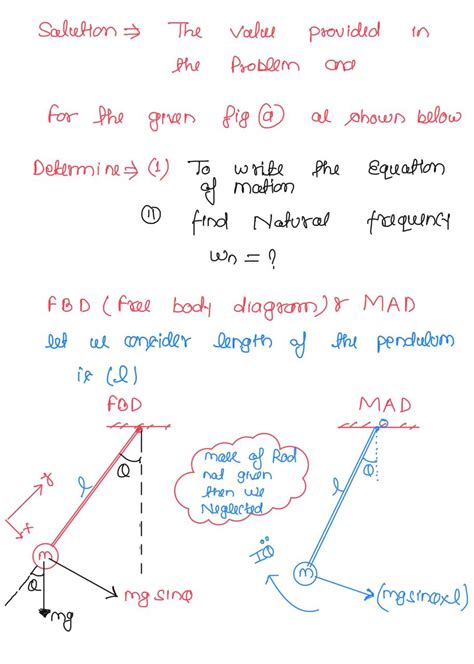 Solution ⇒ The value provided in
the Problem are
for the given fig ⓐ as shown below
Determine ⇒ (1) To write the Equation
of motion
(II) find Natural frequency
ωn = ?
FBD (free body diagram) & MAD
let we consider length of the pendulum
is (l)
FBD
MAD
θ
θ
l
l
mass of Rod
not given
then we
Neglected
y
x
Iθ̈
m
m
θ
mg sinθ
(mgsinθxl)
mg